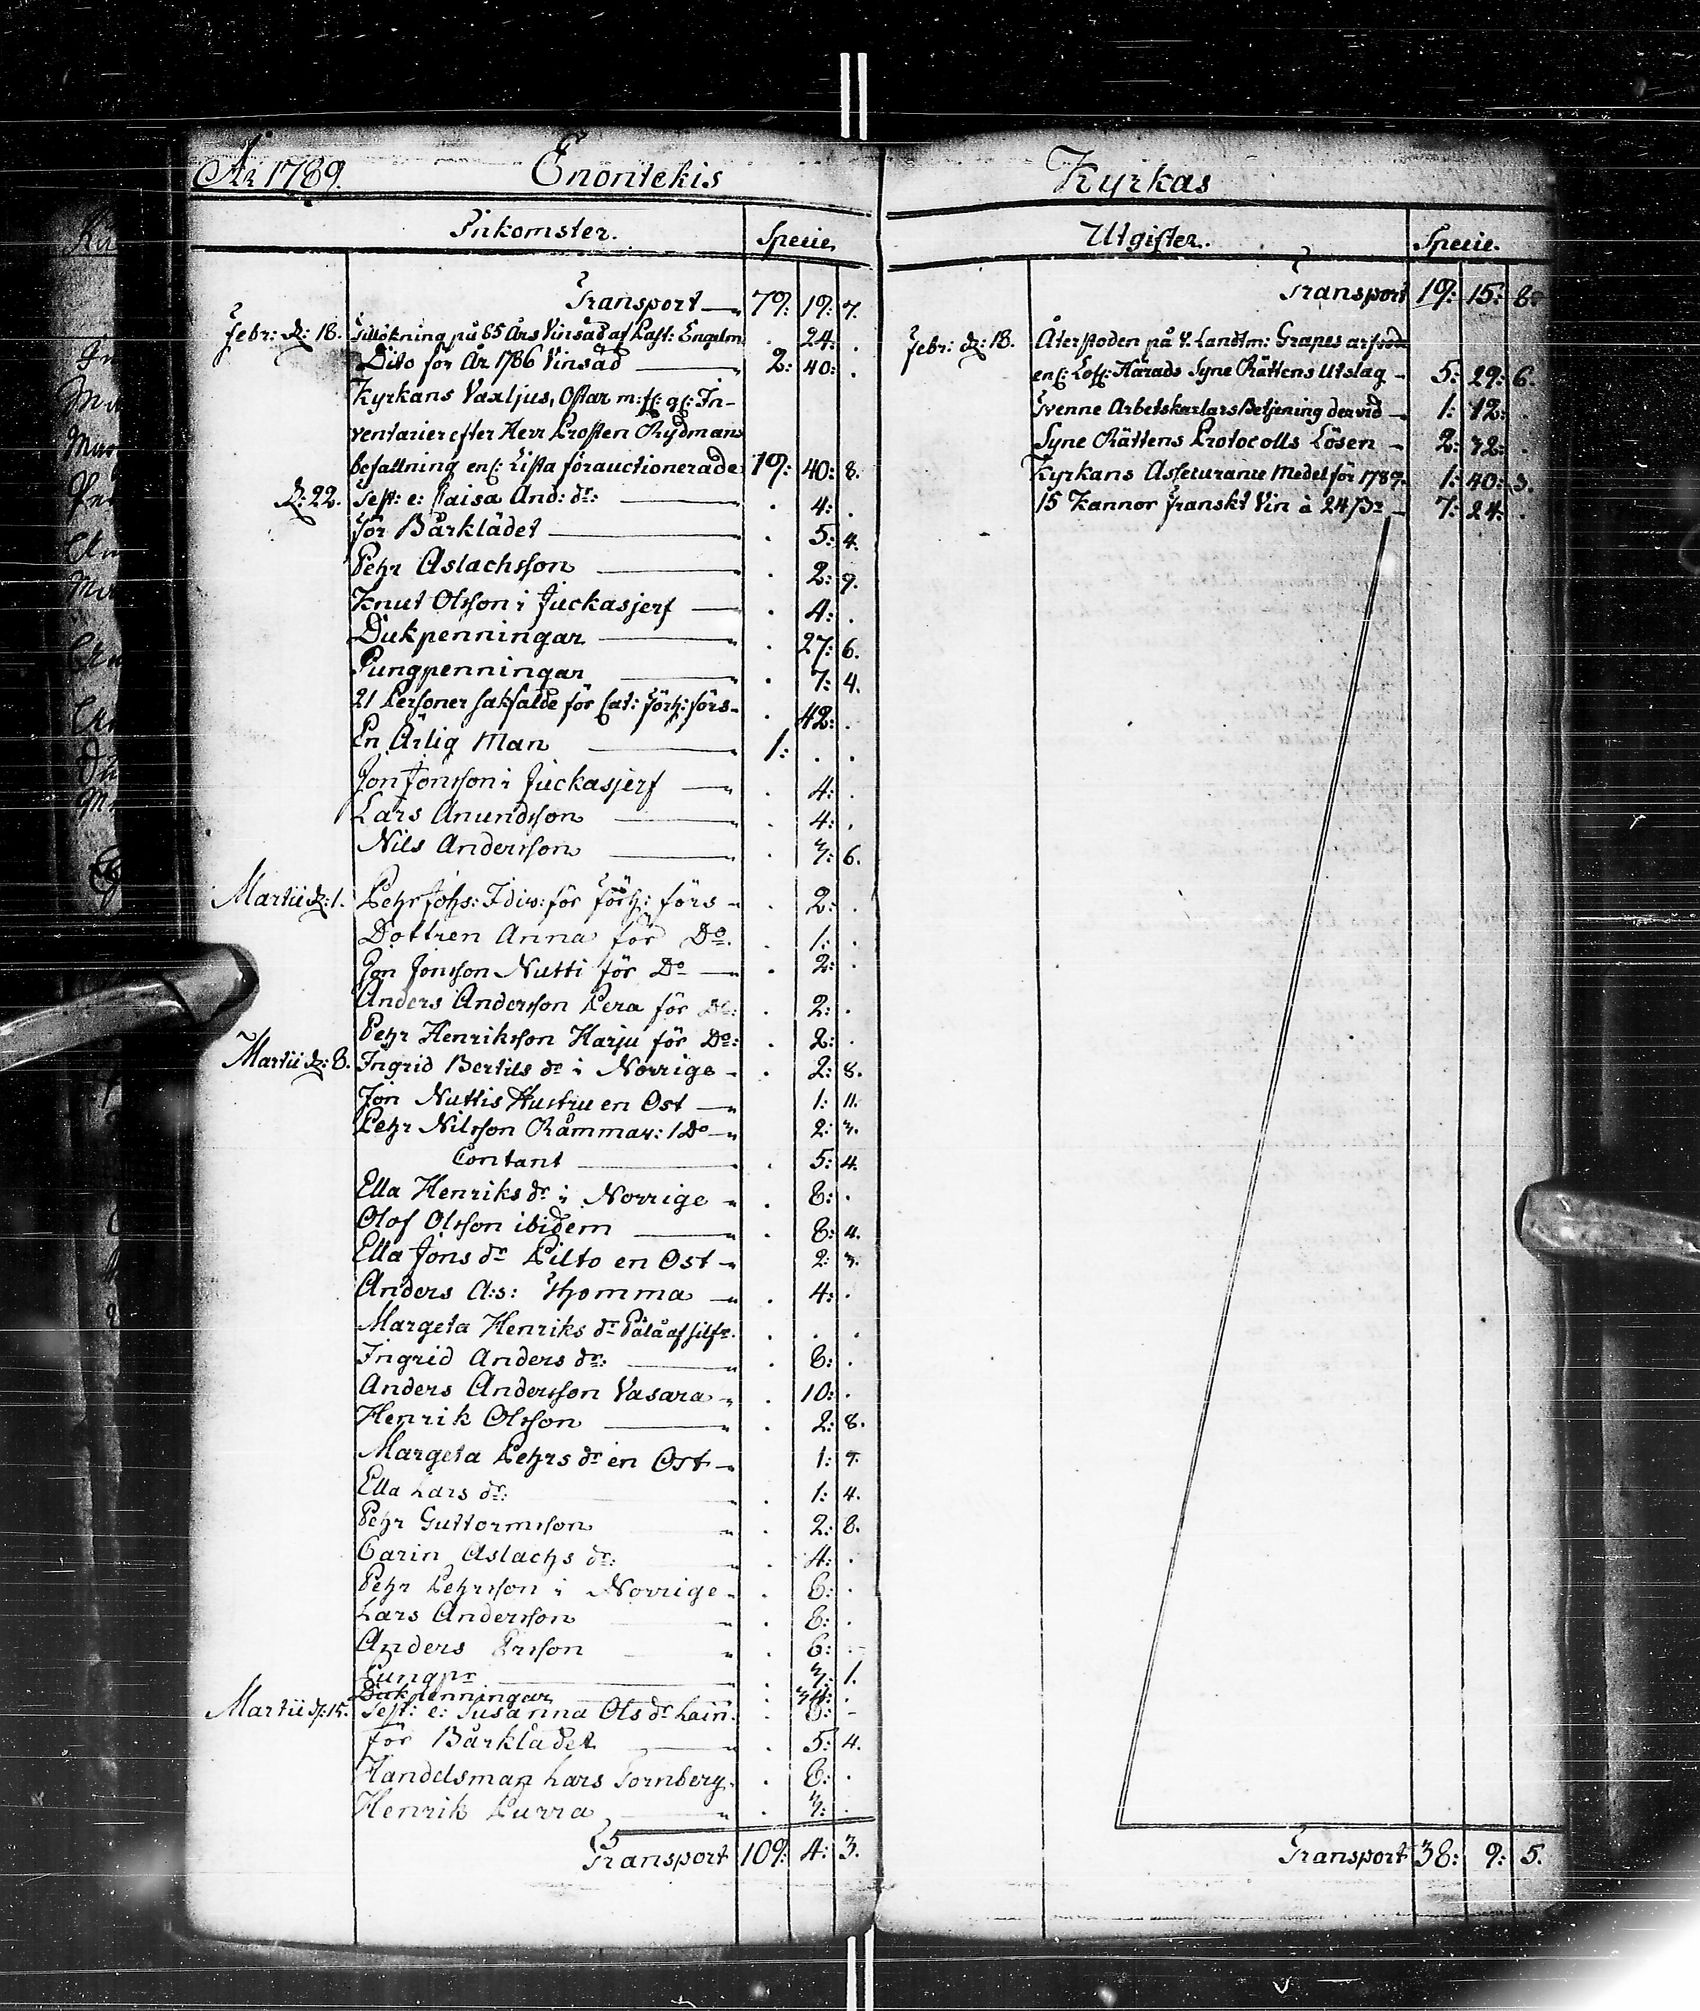 År 1789. Enontekis
Inkomster. Specie.
Transport 79: 19: 7.
Febr: d: 18. Tillökning på 85 Års Vinsäd af Past: Engelm . 24: .
Dito för År 1786 Vinsäd 2: 40: .
Kyrkans Vaxljus, Ostar m: fl: gl: In-
ventarier efter Herr Prosten Rydmans
befallning enl: Lista förauctionerade 19: 40: 8.
d: 22. Test: e: Caisa And: dr: . 4: .
för Bårklädet . 5: 4.
Pehr Aslachsson . 2: 9.
Knut Olsson i Juckasjerf . 4: .
Dukpenningar . 27: 6.
Pungpenningar . 7: 4.
21 Personer sakfälde för Cat: Förh: förs- . 42: .
En Ärlig Man 1: . .
Jon Jonsson i Juckasjerf . 4: .
Lars Anundsson . 4: .
Nils Andersson . 3: 6.
Martii d: 1. Pehr Johs: Idiv: för Förh: förs . 2: .
Dottren Anna för Do. . 1: .
Jon Jonsson Nutti för Do . 2: .
Anders Andersson Pera för Do: . 2: .
Pehr Henriksson Harju för Do: . 2: .
Martii d: 8. Ingrid Bertils dr i Norrige . 2: 8.
Jon Nuttis Hustru en Ost 1: 11.
Pehr Nilsson Råmmav: 1 Do 2: 3.
Contant . 5: 4.
Ella Henriks dr i Norrige . 8: .
Olof Olsson ibidem . 8: 4.
Ella Jons dr Pilto en Ost 2: 3.
Anders A:s: Thomma . 4: .
Margeta Henriks dr Påla af silfr. . . .
Ingrid Anders dr: . 8: .
Anders Andersson Vasara . 10: .
Henrik Olsson . 2: 8.
Margeta Pehrs dr en Ost 1: 9.
Ella Lars dr: . 1: 4.
Pehr Guttormsson . 2: 8.
Carin Aslachs dr: . 4: .
Pehr Pehrsson i Norrige . 8: .
Lars Andersson . 8: .
Anders Ersson . 6: .
Pungpr . 3: 1.
Dukpenningar . 34: .
Martii d: 15. Test: e: Susanna Ols dr Lain: . 8: -
för Bårklädet . 5: 4.
Handelsman Lars Fornberg . 8: .
Henrik Purra . 3: .
Transport 109: 4: 3.
Kyrkas
Utgifter. Specie.
Transport 19: 15: 8.
Febr: d: 18. Återstoden på V. Landtm: Grapes arfvode
enl: Lofl: Härads Syne Rättens Utslag 5: 29: 6.
Tvenne Arbetskarlars Betjening dervid 1: 12: .
Syne Rättens Protocolls Lösen 2: 32: .
Kyrkans Asseturance Medel för 1789. 1: 40: 3.
15 Kannor Franskt Vin à 24 ßr 7: 24: .
Transport 38: 9: 5.